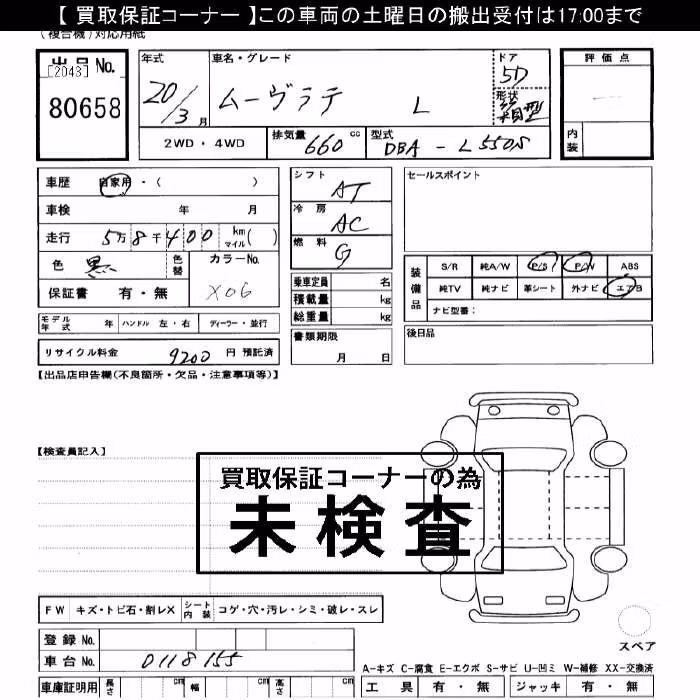 【 買取保証コーナー 】この車両の土曜日の搬出受付は17:00まで
(複合機)対応用紙
出品 No.
[2043]
80658
年式
20/3月
車名・グレード
ムーヴラテ L
ドア
5D
形状
箱型
2WD・4WD
排気量
660 cc
型式
DBA - L550S
評価点
内装
車歴 自家用・( )
車検 年 月
走行 5万8千400 km マイル( )
色 黒
色替
カラーNo.
X06
保証書 有・無
シフト
AT
冷房
AC
燃料
G
乗車定員 名
積載量 kg
総重量 kg
セールスポイント
装備品
S/R 純A/W P/S P/W ABS
純TV 純ナビ 革シート 外ナビ エアB
ナビ型番:
モデル年式 年 ハンドル 左・右 ディーラー・並行
書類期限
月 日
後日品
リサイクル料金 9200 円 預託済
【出品店申告欄(不良箇所・欠品・注意事項等)】
【検査員記入】
買取保証コーナーの為
未検査
FW キズ・トビ石・割レX
シート内装 コゲ・穴・汚レ・シミ・破レ・スレ
登録 No.
車台 No. 0118155
スペア
A-キズ C-腐食 E-エクボ S-サビ U-凹ミ W-補修 XX-交換済
車庫証明用 長さ cm 幅 cm 高さ cm
工具 有・無 ジャッキ 有・無